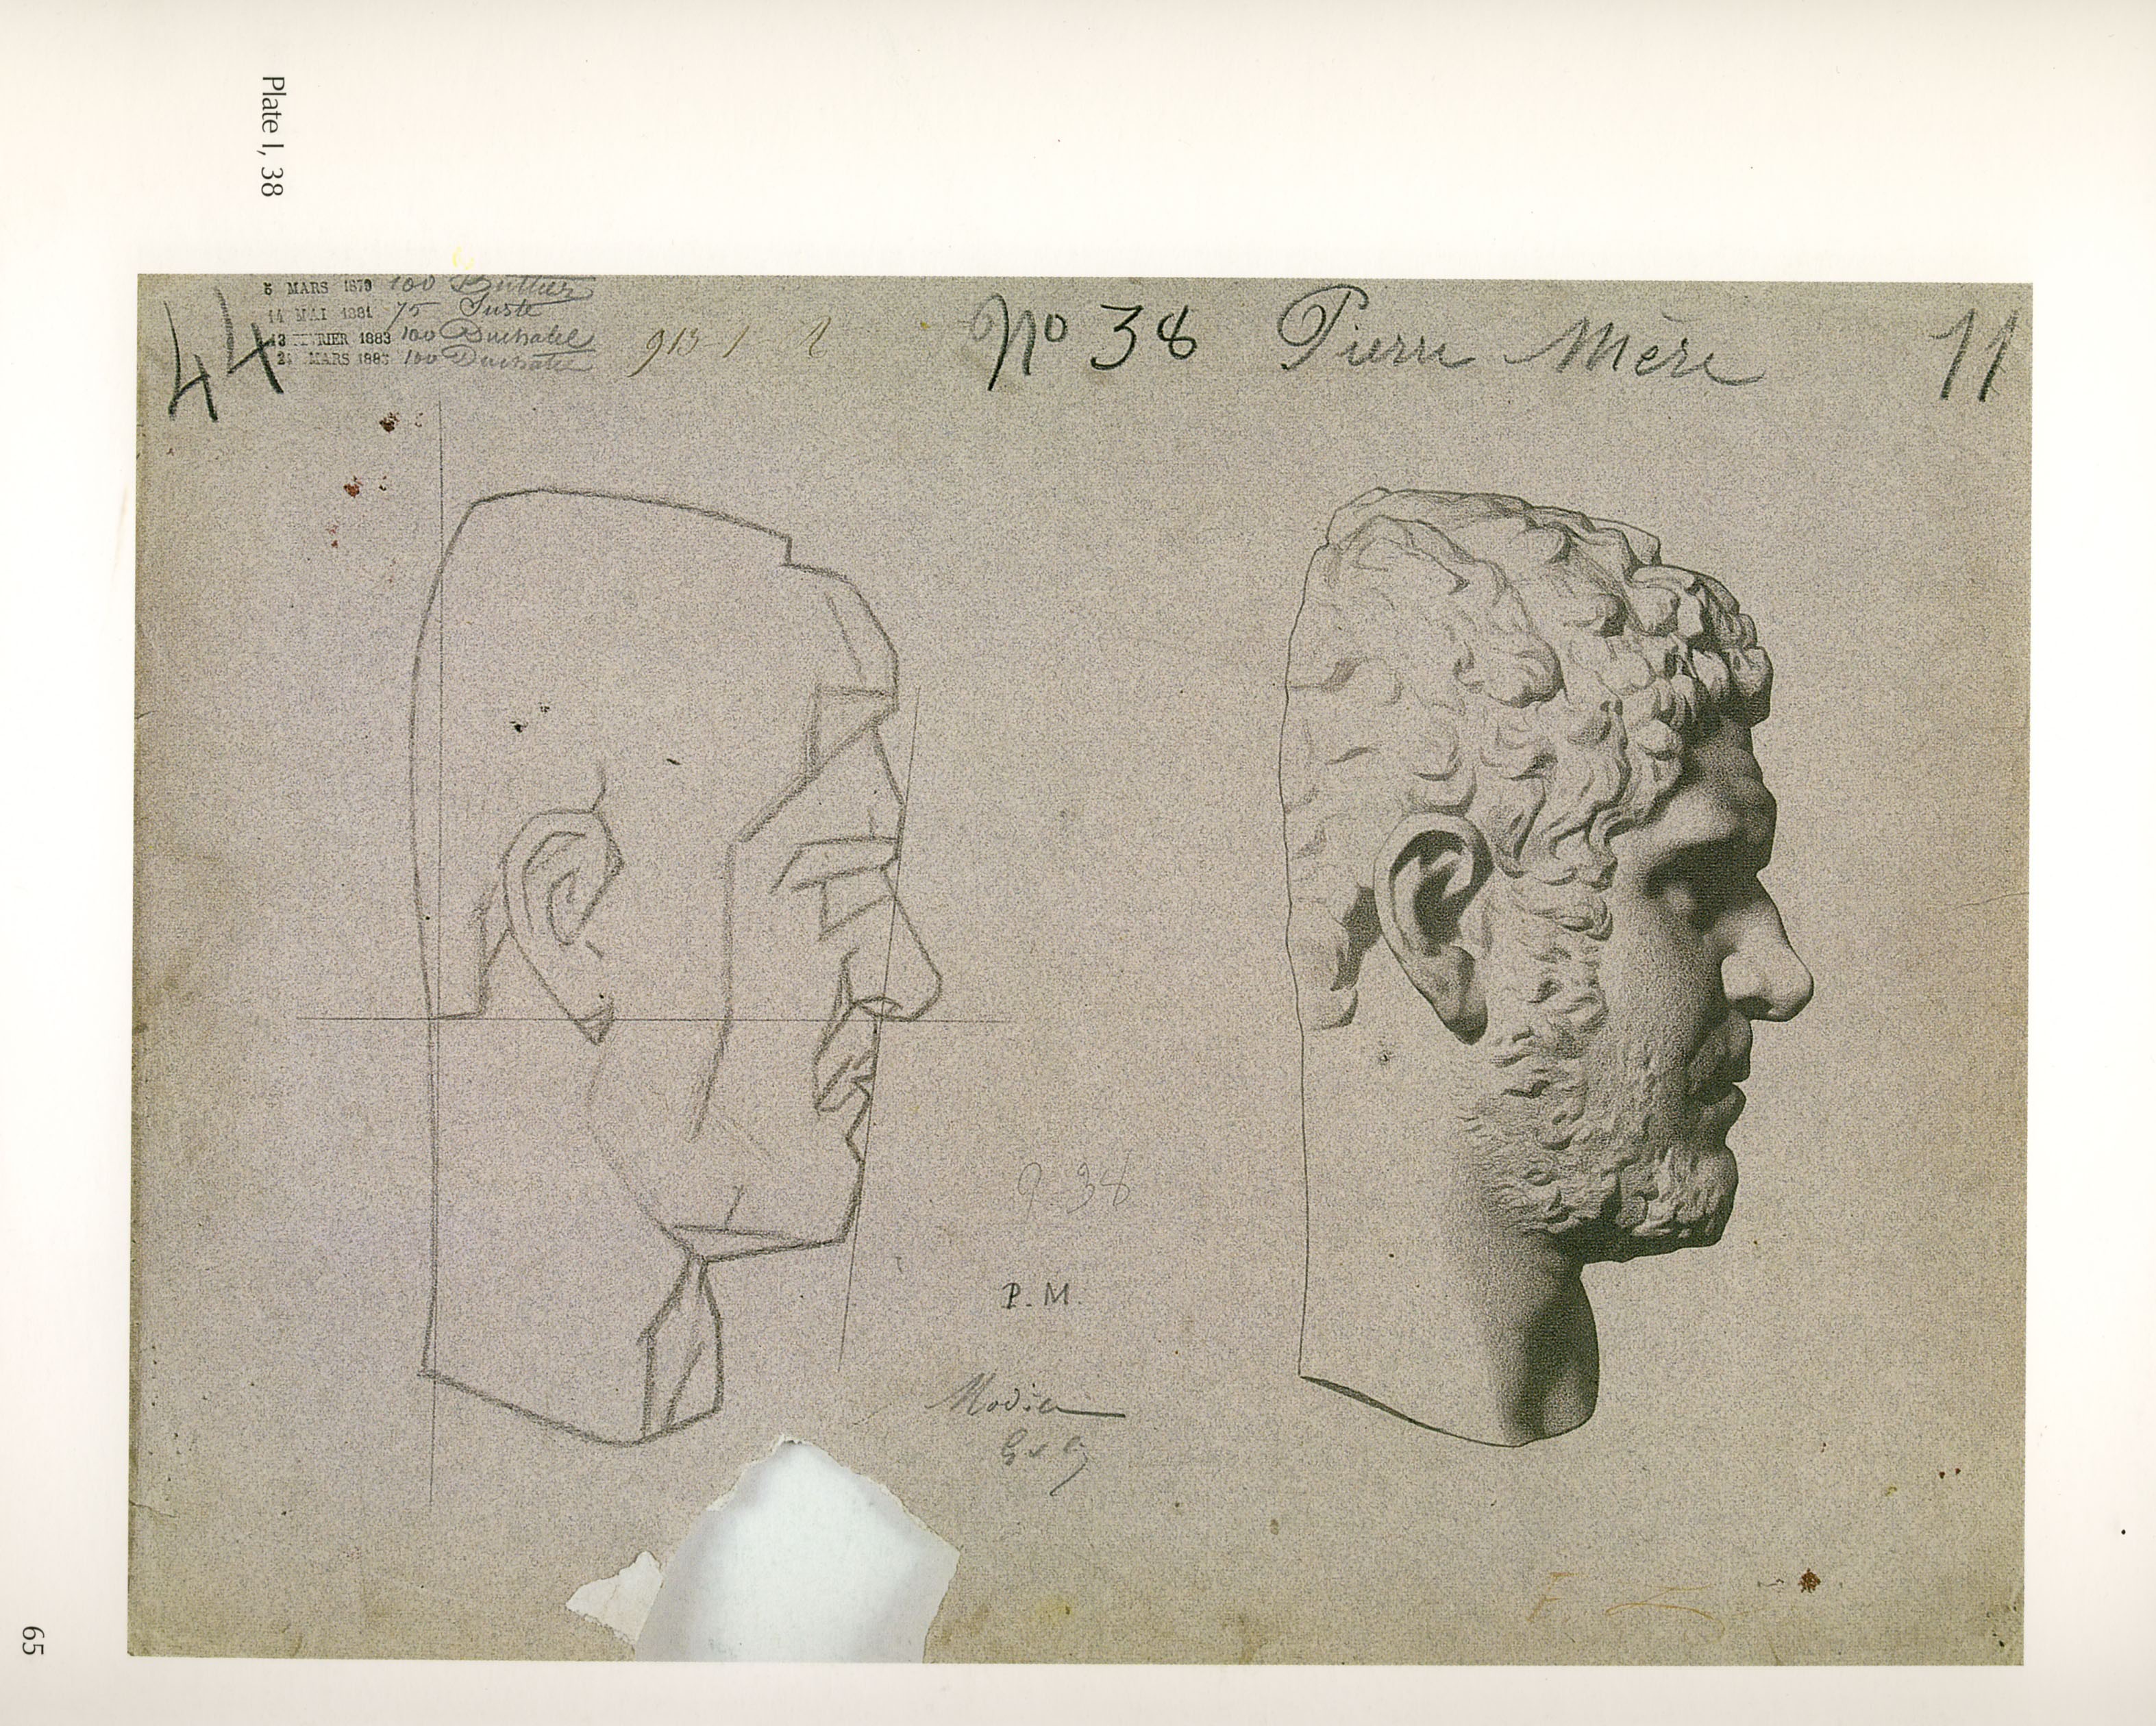 Plate I, 38
44
5 MARS 1879 100
14 MAI 1881 75 Juste
13 FEVRIER 1883 100 Duchatel
21 MARS 188 100 Duchatel
913 1
No 38 Pierre Mère
11
38
P. M.
65